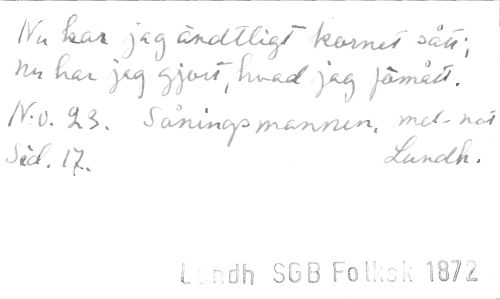 Nu har jag ändtligt kornet sått;
nu har jag gjort, hvad jag förmått.
N:o. 23. Såningsmannen. mel-not
Sid. 17. Lundh.
Lundh SGB Folksk 1872